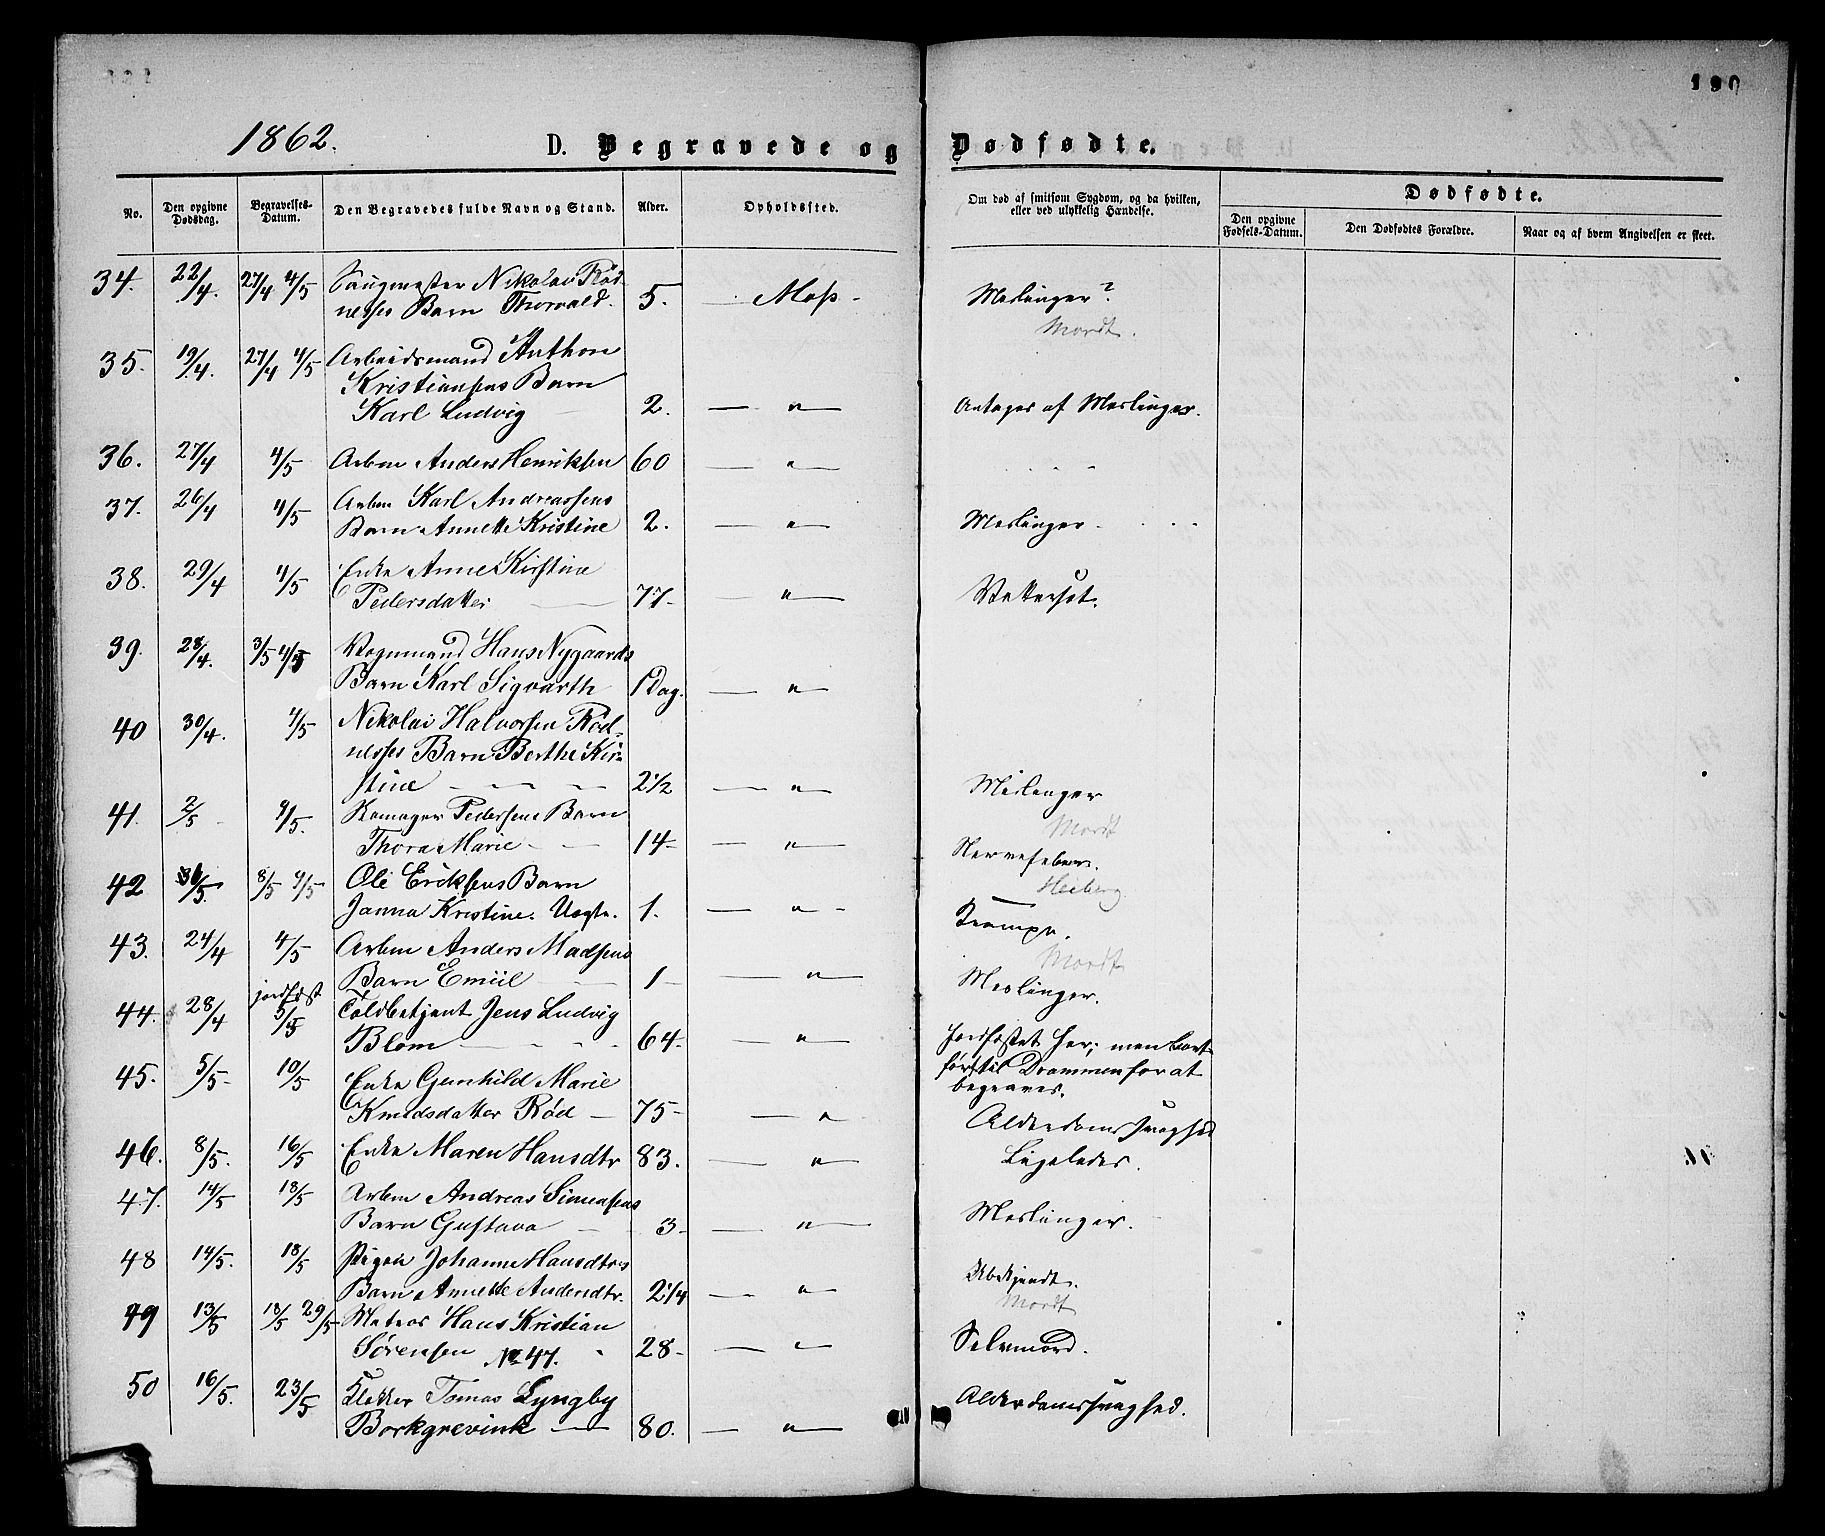 190
1862.
D. Begravede og Dødfødte.
No.
Den opgivne Dødsdag.
Begravelses-Datum.
Den Begravedes fulde Navn og Stand.
Alder.
Opholdssted.
Om død af smitsom Sygdom, og da hvilken, eller ved ulykkelig Hændelse.
Dødfødte.
Den opgivne Fødsels-Datum.
Den Dødfødtes Forældre.
Naar og af hvem Angivelsen er skeet.
34. 22/4. 27/4 4/5 Saugmester Nikolai Rød-
nesses Barn Thorvald. 5. — Moss - Meslinger?
Mordt.
35. 19/4. 27/4 4/5 Arbeidsmand Anthon
Kristiansens Barn
Karl Ludvig 2. — " — Antages af Meslinger.
36. 27/4 4/5 Arbm Anders Henriksen 60 — " —
37. 26/4 4/5 Arbm Karl Andreassens
Barn Annette Kristine 2. — " — Meslinger
38. 29/4 4/5 Enke Anne Kirstine
Pedersdatter 77- — " — Vattersot.
39. 28/4. 3/5 4/5 Vognmand Hans Nygaards
Barn Karl Sigvarth 1 Dag. — " —
40 30/4. 4/5 Nikolai Halvorsen Rød-
nesses Barn Berthe Kir-
stine 2 1/2 — " — Meslinger
Mordt
41. 2/5 4/5. Pedersens Barn
Thora Marie 14- — " — Nervefeber.
Heiberg
42 /5. 8/5 4/5 Ole Eriksens Barn
Janna Kristine. Uægte. 1. — " — Krampe.
Mordt
43. 24/4 4/5 Arbm Anders Madsens
Barn Emiil 1- — " — Meslinger.
44. 28/4 jordfæst 5/5 Toldbetjent Jens Ludvig
Blom 64- — " — Jordfæstet her; men bort-
ført til Drammen for at
begraves.
45. 5/5- 10/5 Enke Gunhild Marie
Knudsdatter Rød — 75- — " Alderdomssvaghed
46. 8/5. 16/5 Enke Maren Hansdtr 83. — " — Ligeledes.
47. 14/5 18/5 Arbm Andreas Simensens
Barn Gustava 3- — " — Meslinger.
48 14/5. 18/5 Pigen Johanne Hansdtrs
Barn Annette Andersdtr. 2 1/4 — " — Ubekjendt.
Mordt
49 13/5 18/5 29/5 Matros Hans Kristian
Sørensen No 47. 28- — " — Selvmord.
50 16/5. 23/5 Klokker Tomas Lyngby
Borkgrevink — 80. — " — Alderdomssvaghed.